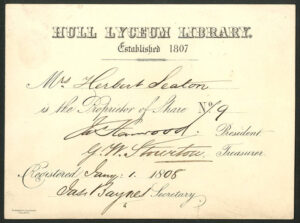 HULL LYCEUM LIBRARY.
Established 1807
Mrs Herbert Seaton
is the Proprietor of Share No. 79
President
G. W. Stourton Treasurer
Registered Jany. 1. 1808
Secretary